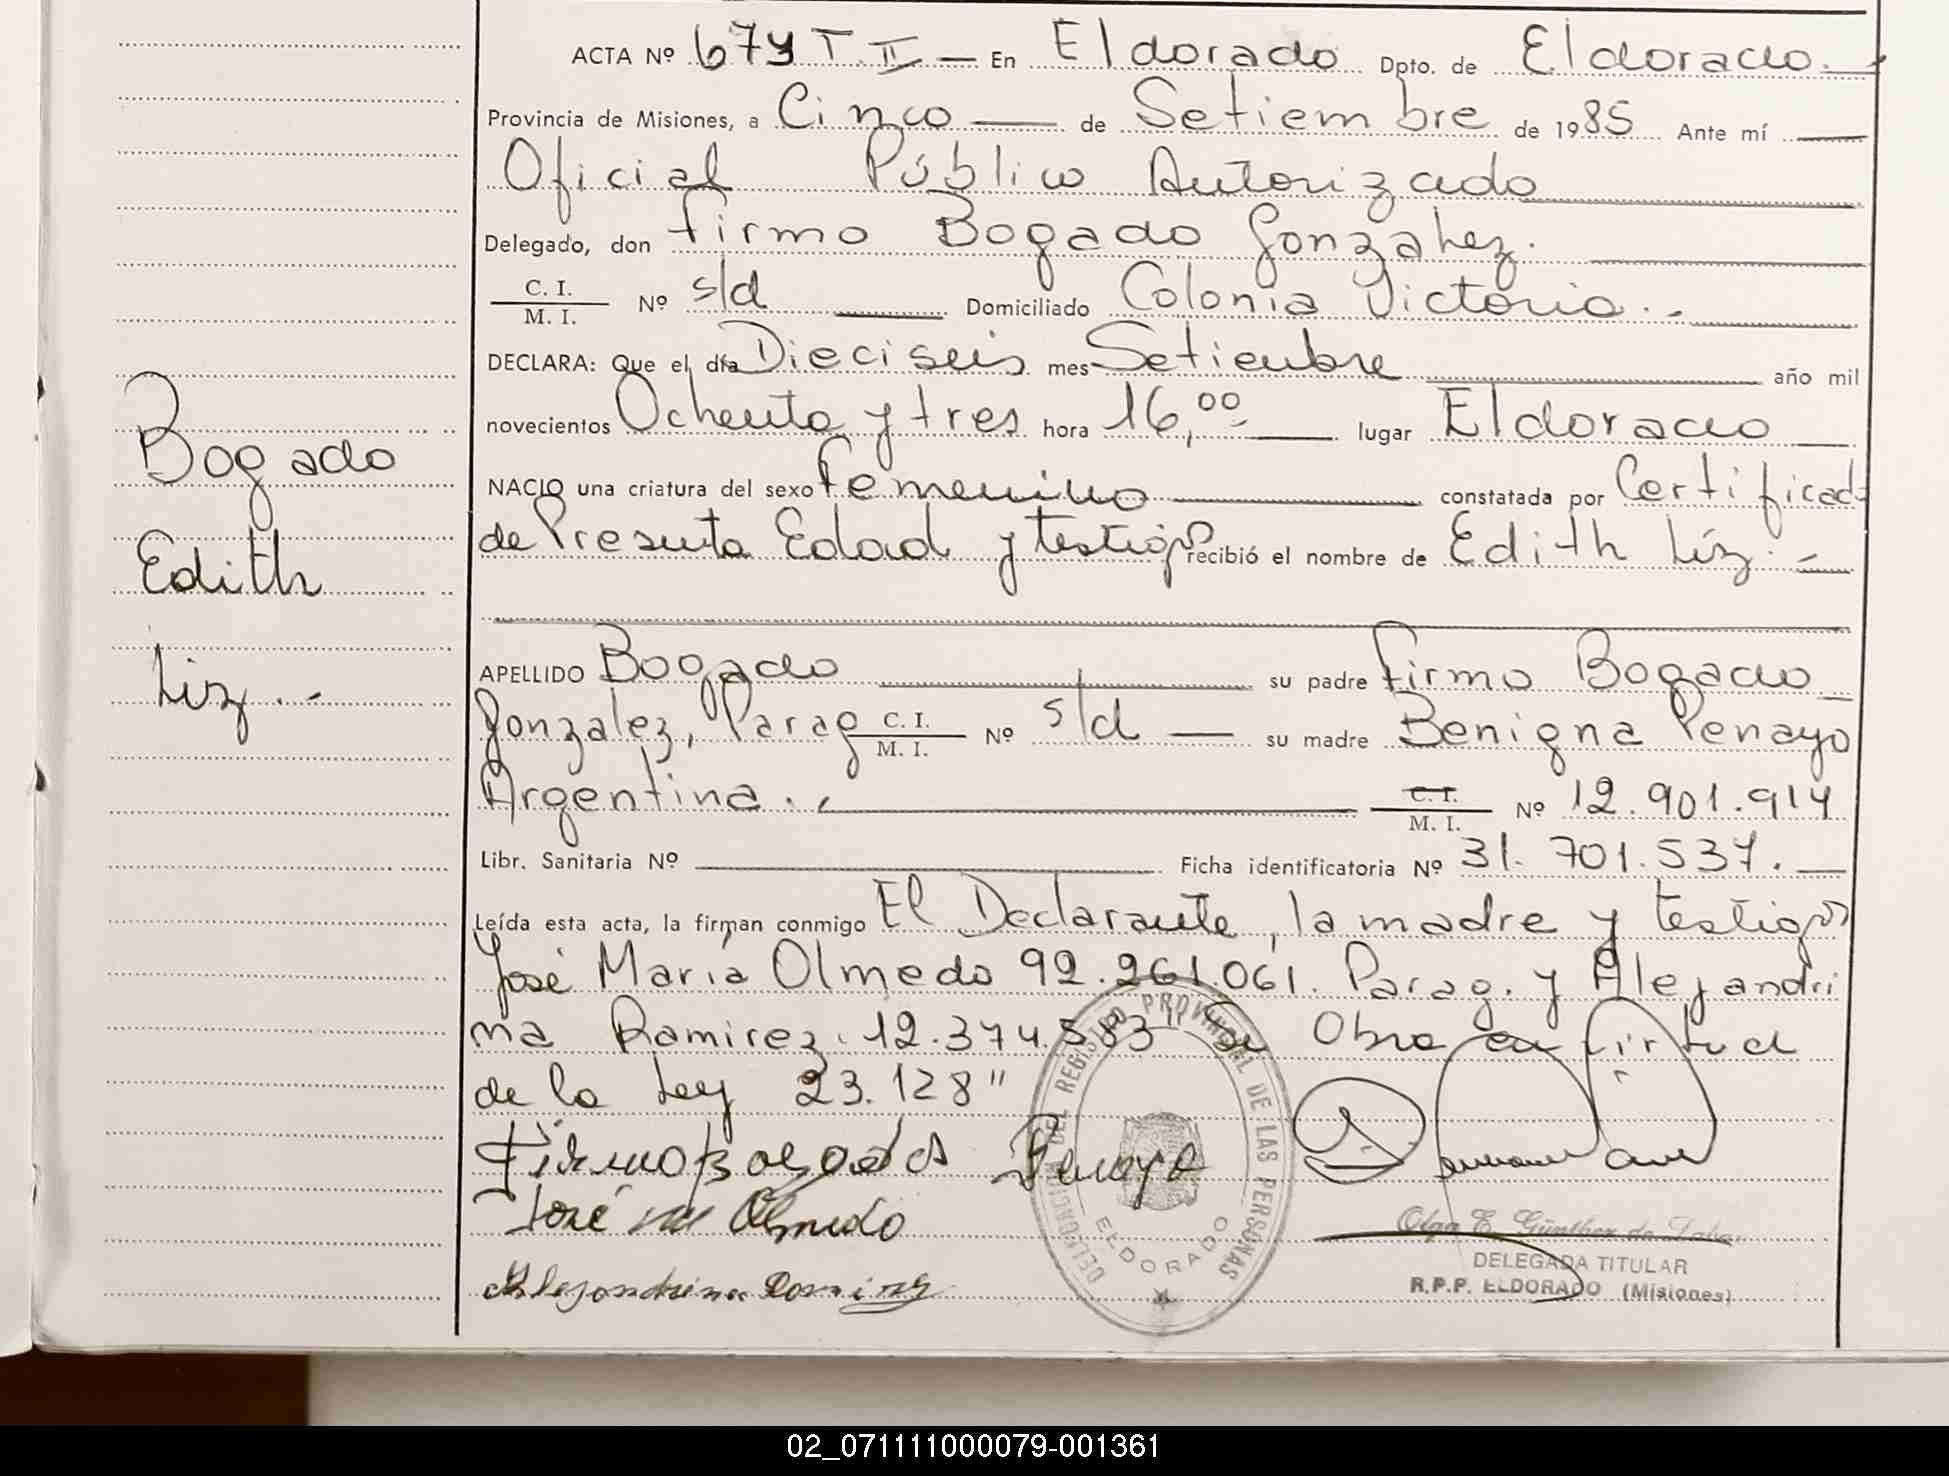 ACTA Nº 679 T. II — En Eldorado Dpto. de Eldorado.
Provincia de Misiones, a Cinco — de Setiembre de 1985 Ante mí —
Oficial Público Autorizado
Delegado, don Firmo Bogado Gonzalez.
C. I. / M. I. Nº s/d Domiciliado Colonia Victoria.-
DECLARA: Que el día Dieciseis mes Setiembre año mil
novecientos Ochenta y tres hora 16,00 lugar Eldorado
NACIO una criatura del sexo Femenino constatada por Certificado
de Presunta Edad y testigos recibió el nombre de Edith Liz.-
Bogado
Edith
Liz.-
APELLIDO Bogado su padre Firmo Bogado
Gonzalez, Parag C. I. / M. I. Nº s/d — su madre Benigna Penayo
Argentina.- C. I. / M. I. Nº 12.901.914
Libr. Sanitaria Nº Ficha identificatoria Nº 31.701.537.
Leída esta acta, la firman conmigo El Declarante, la madre y testigos
José María Olmedo 92.261.061. Parag. y Alejandri
na Ramirez. 12.374.583 "Se Obra en virtud
de la Ley 23.128"
Firmo Bogado Penayo
José Ma Olmedo
Alejandrina Ramirez
DELEGACION DEL REGISTRO PROVINCIAL DE LAS PERSONAS
ELDORADO
Olga E. Günther de
DELEGADA TITULAR
R.P.P. ELDORADO (Misiones)
02_071111000079-001361